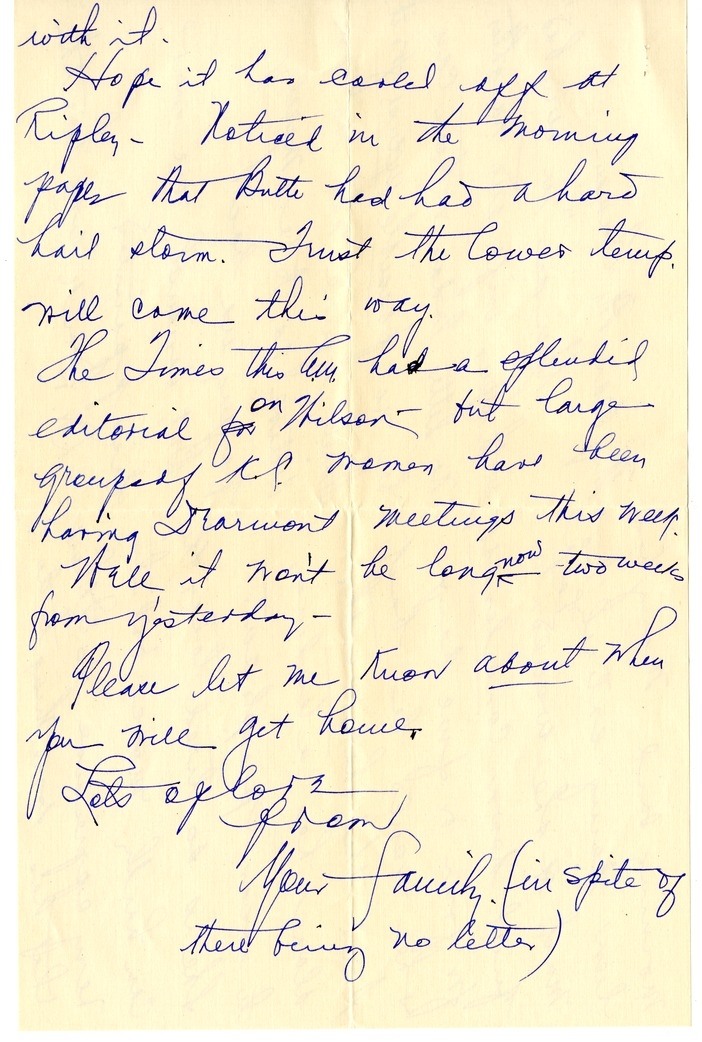 with it.
Hope it has cooled off at
Ripley - Noticed in the morning
paper that Butte had had a hard
hail storm. Trust the lower temp.
will come this way.
The Times this a.m. had a splendid
editorial for on Wilson - but large
groups of K.C. women have been
having meetings this week.
Well it won't be long now - two weeks
from yesterday -
Please let me know about when
you will get home.
Lots of love
from
Your family. (in spite of
there being no letter)